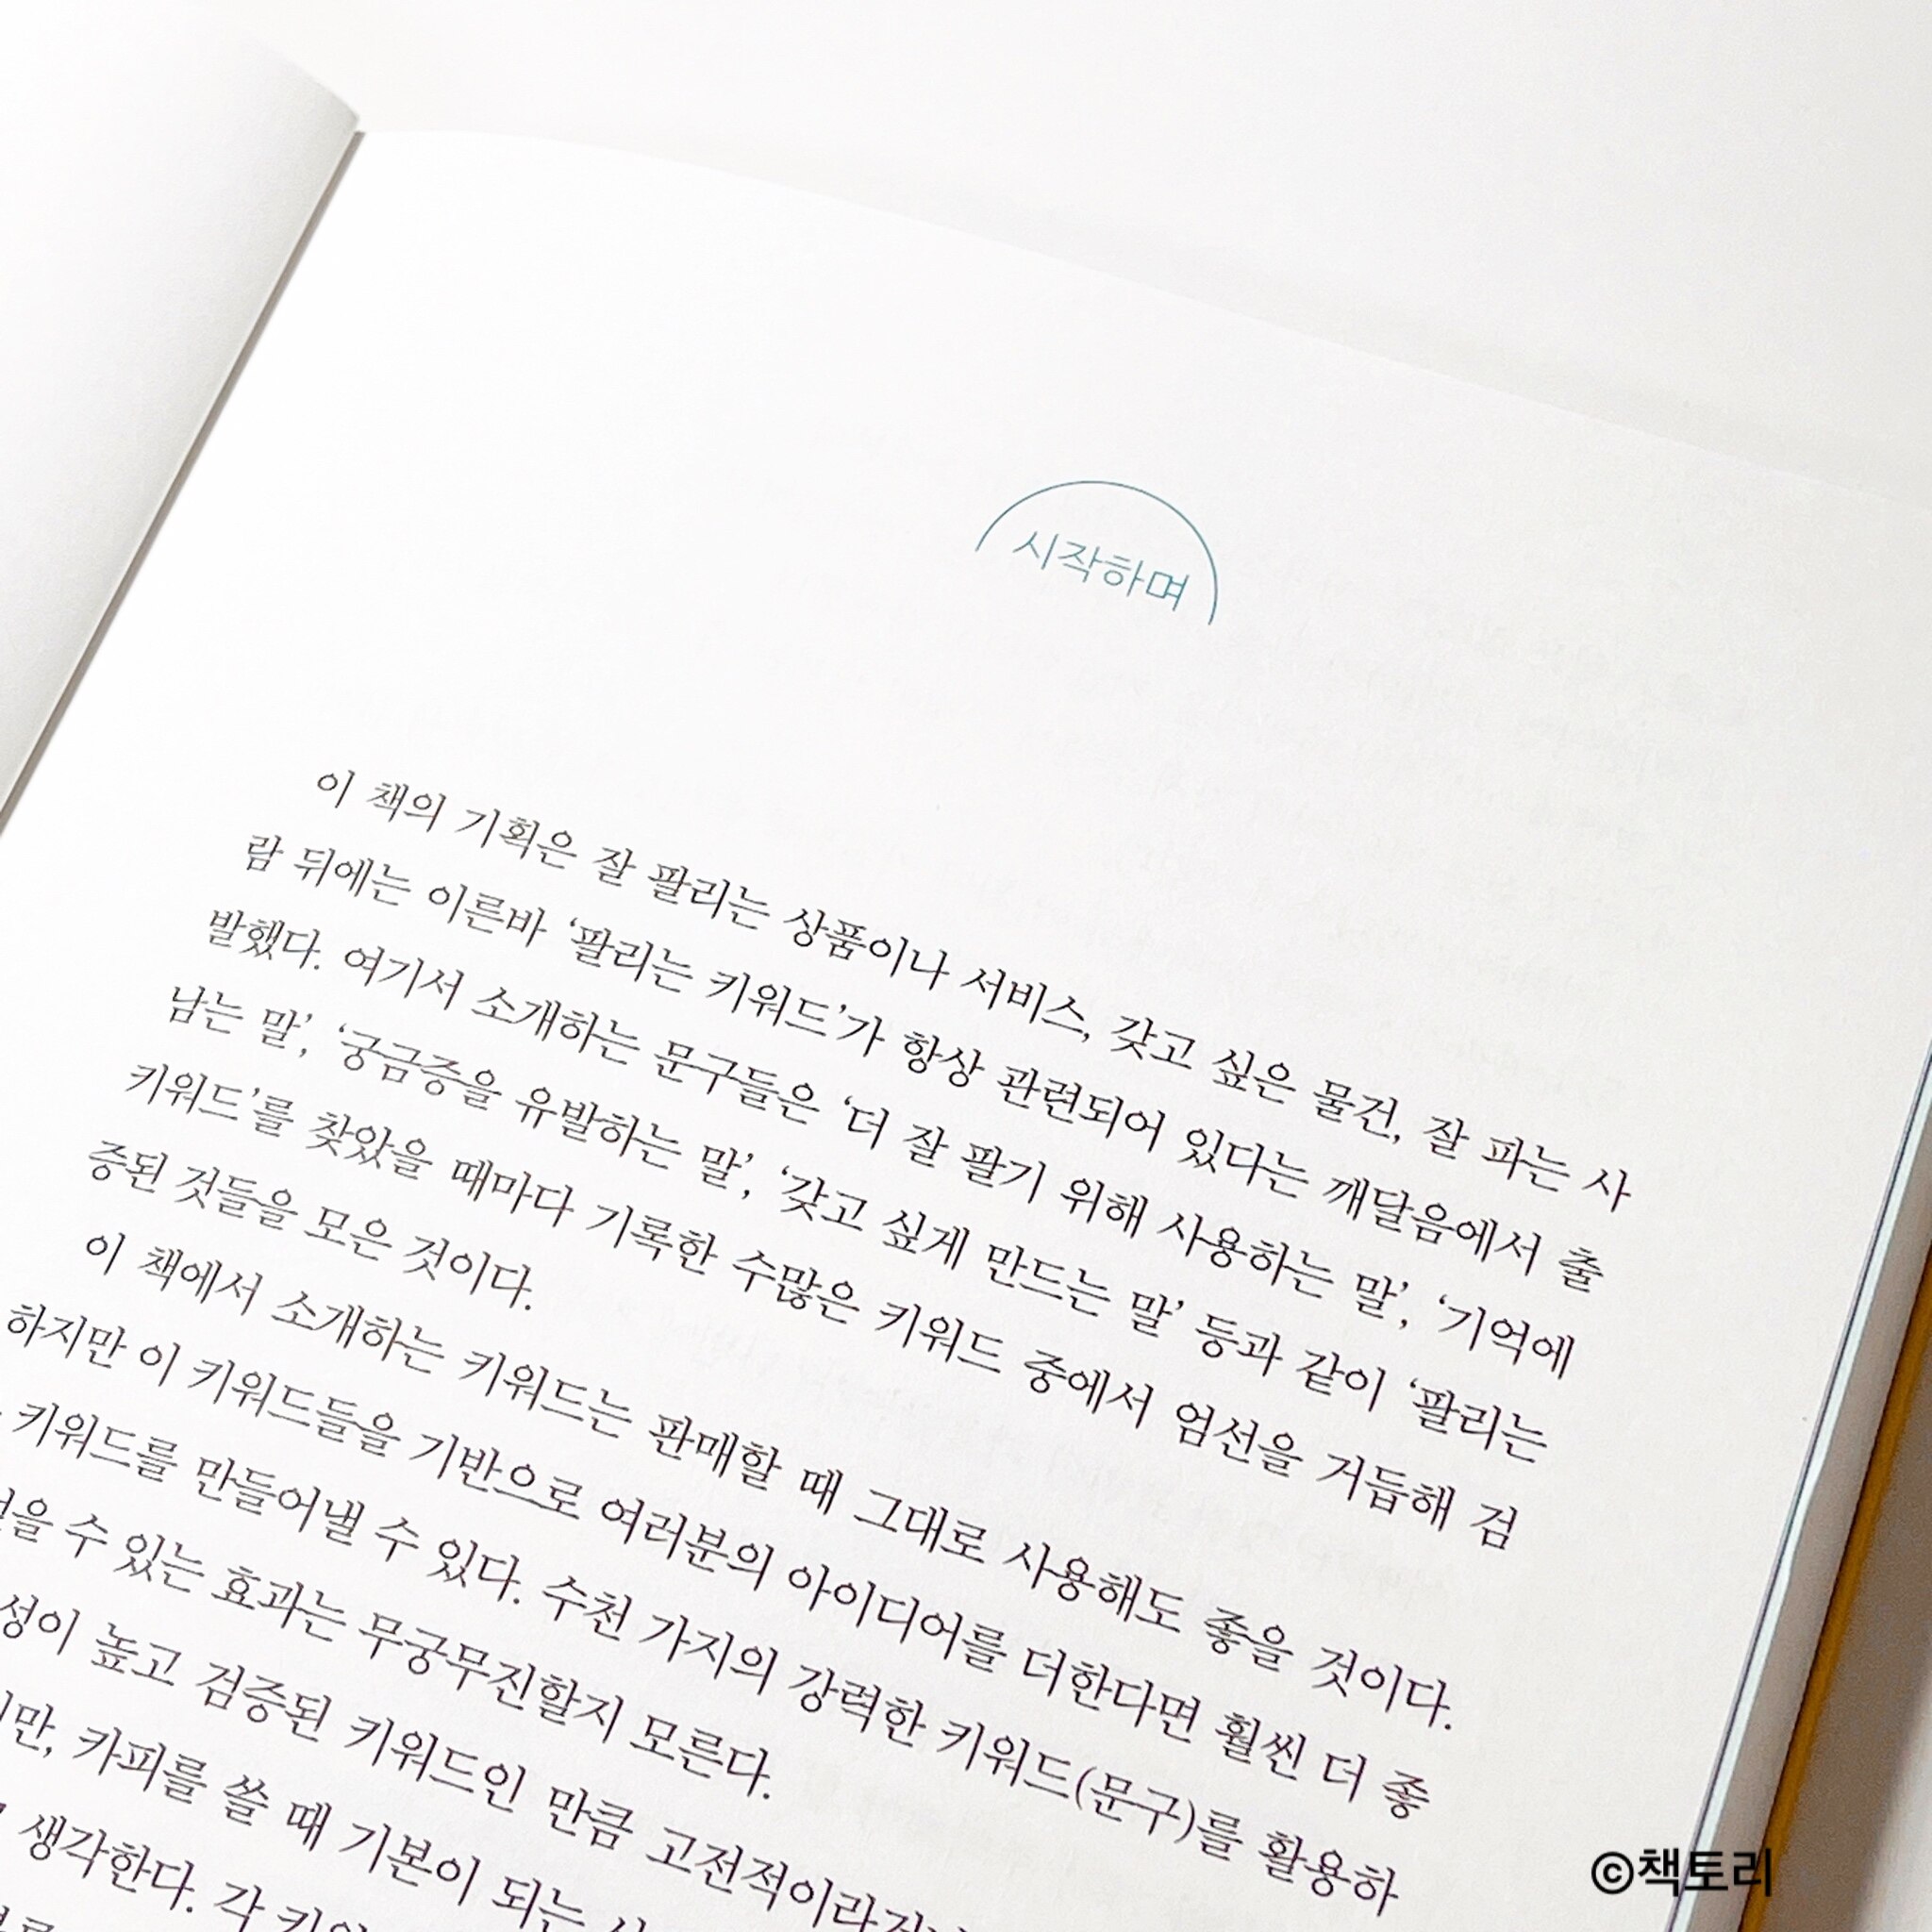 시작하며
이 책의 기획은 잘 팔리는 상품이나 서비스, 갖고 싶은 물건, 잘 파는 사
람 뒤에는 이른바 ‘팔리는 키워드’가 항상 관련되어 있다는 깨달음에서 출
발했다. 여기서 소개하는 문구들은 ‘더 잘 팔기 위해 사용하는 말’, ‘기억에
남는 말’, ‘궁금증을 유발하는 말’, ‘갖고 싶게 만드는 말’ 등과 같이 ‘팔리는
키워드’를 찾았을 때마다 기록한 수많은 키워드 중에서 엄선을 거듭해 검
증된 것들을 모은 것이다.
이 책에서 소개하는 키워드는 판매할 때 그대로 사용해도 좋을 것이다.
하지만 이 키워드들을 기반으로 여러분의 아이디어를 더한다면 훨씬 더 좋
키워드를 만들어낼 수 있다. 수천 가지의 강력한 키워드(문구)를 활용하
수 있는 효과는 무궁무진할지 모른다.
성이 높고 검증된 키워드인 만큼 고전적이라
만, 카피를 쓸 때 기본이 되는
생각한다. 각
©책토리